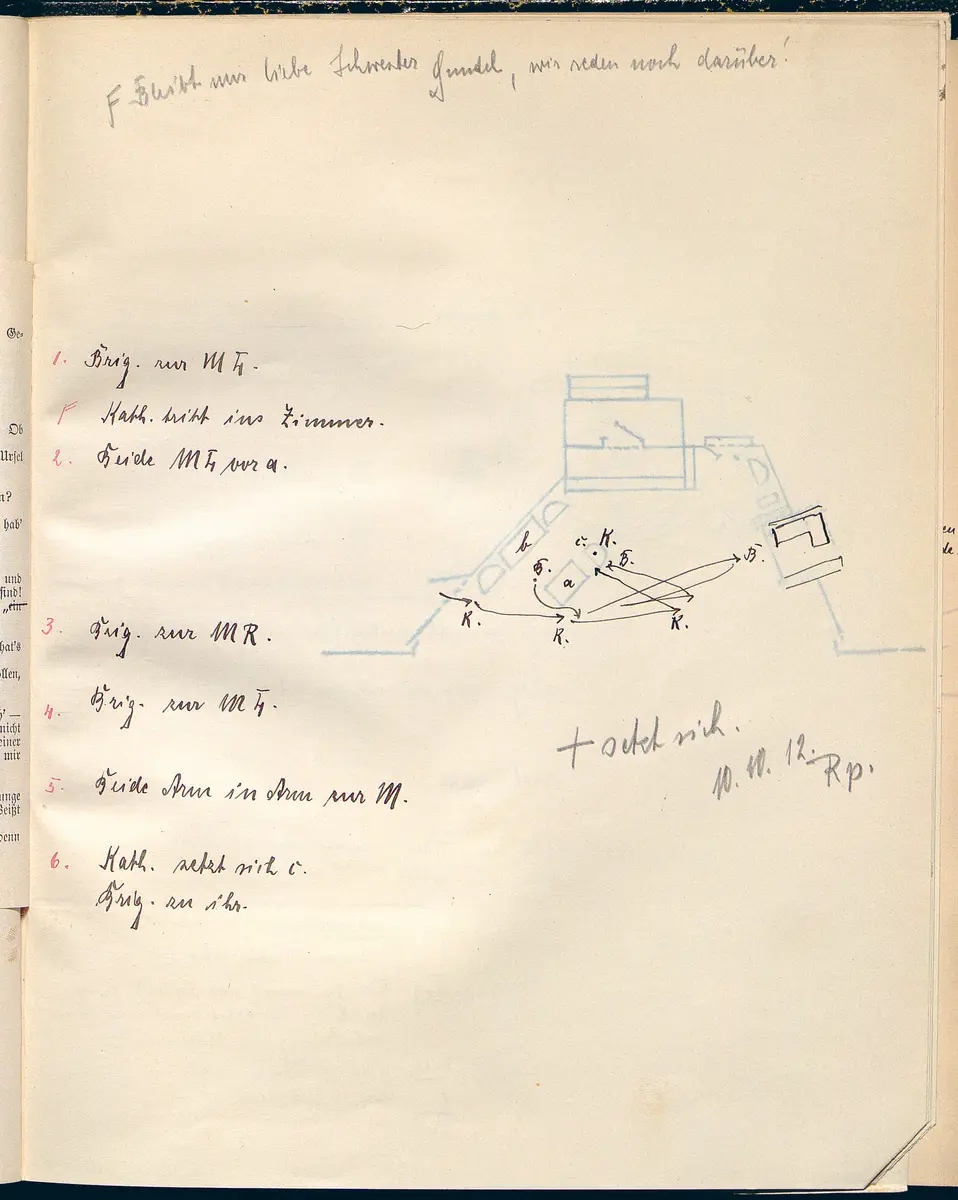 F Bleibt nur liebe Schwester Gundel, wir reden noch darüber!
Ge-
Ob
Ursel
n?
hab'
und
find!
„ein
hat's
ollen,
' —
nicht
einer
mir
unge
Beißt
denn
1. Brig. zur M L.
F Kath. tritt ins Zimmer.
2. Beide M L vor a.
3. Brig. zur M R.
4. Brig. zur M L.
5. Beide Arm in Arm zur M.
6. Kath. setzt sich c.
Brig. zu ihr.
b
c. K.
B.
B.
a
B.
K.
K.
K.
+ setzt sich.
10. 10. 12. Rp.
en
de